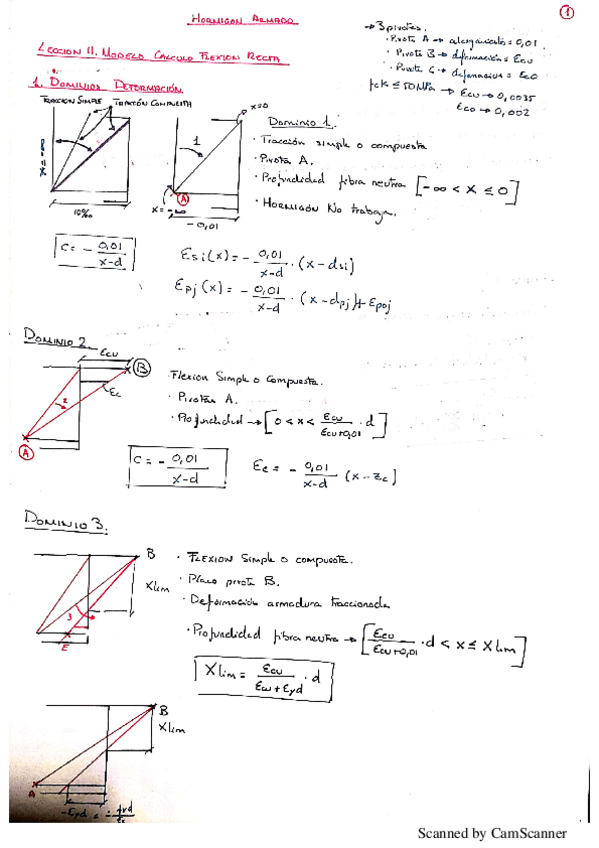 HORMIGON ARMADO
1
→ 3 pivotes.
· Pivote A → alargamiento = 0,01
· Pivote B → deformación = Ecu
· Pivote C → deformación = Eco
fck ≤ 50 MPa → Ecu → 0,0035
Eco → 0,002
LECCION 11. MODELO CALCULO FLEXION RECTA
1. DOMINIOS DEFORMACIÓN.
TRACCION SIMPLE
TRACCIÓN COMPUESTA
x=0
1
A
x=-∞
10‰
- 0,01
Dominio 1.
· Tracción simple o compuesta
· Pivota A.
· Profundidad fibra neutra [-∞ < x ≤ 0]
· HORMIGÓN No trabaja.
C = - 0,01 / x-d
Esi(x) = - 0,01 / x-d · (x-dsi)
Epj(x) = - 0,01 / x-d · (x-dpj) + Epoj
DOMINIO 2.
Ecu
B
Ec
2
A
· Flexion Simple o Compuesta.
· Pivota A.
· Profundidad → [0 < x < Ecu / Ecu+0,01 · d]
C = - 0,01 / x-d
Ec = - 0,01 / x-d (x-zc)
DOMINIO 3.
B
Xlim
3
E
· FLEXION Simple o compuesta.
· Placo pivota B.
· Deformación armadura traccionada
· Profundidad fibra neutra → [Ecu / Ecu+0,01 · d < x ≤ Xlim]
Xlim = Ecu / Ecu + Eyd · d
B
Xlim
A
-Eyd = - fyd / Es
Scanned by CamScanner